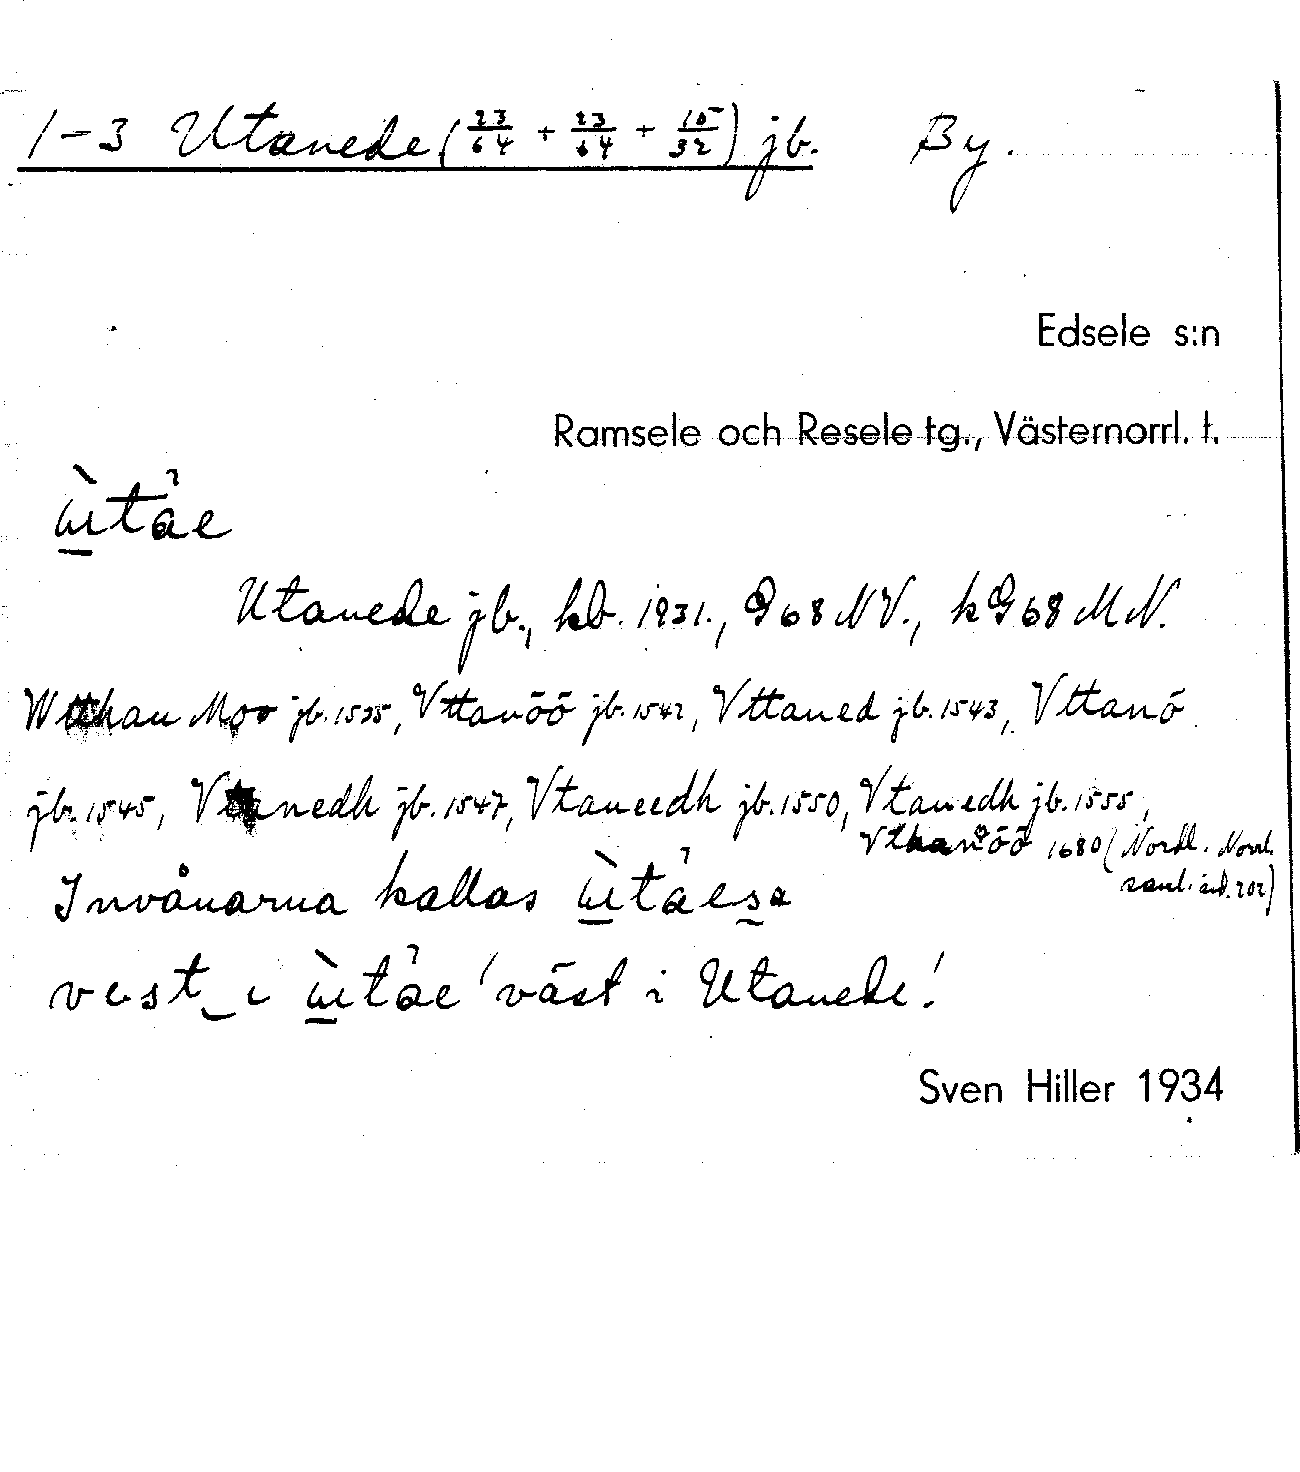 1–3 Utanede (23/64 + 23/64 + 15/32) jb. By.
Edsele s:n
Ramsele och Resele tg., Västernorrl. l.
Utanede jb., kb. 1931., G 68 NV., kG 68 M N.
Moo jb. 1535, Vttanöö jb. 1542, Vttaned jb. 1543, Vttanö
jb. 1545, Vtanedh jb. 1547, Vtaneedh jb. 1550, Vtanedh jb. 1555,
Vthanöö 1680 (Nordl. Norrl.
saml. 202)
Invånarna kallas
'väst i Utanede'.
Sven Hiller 1934